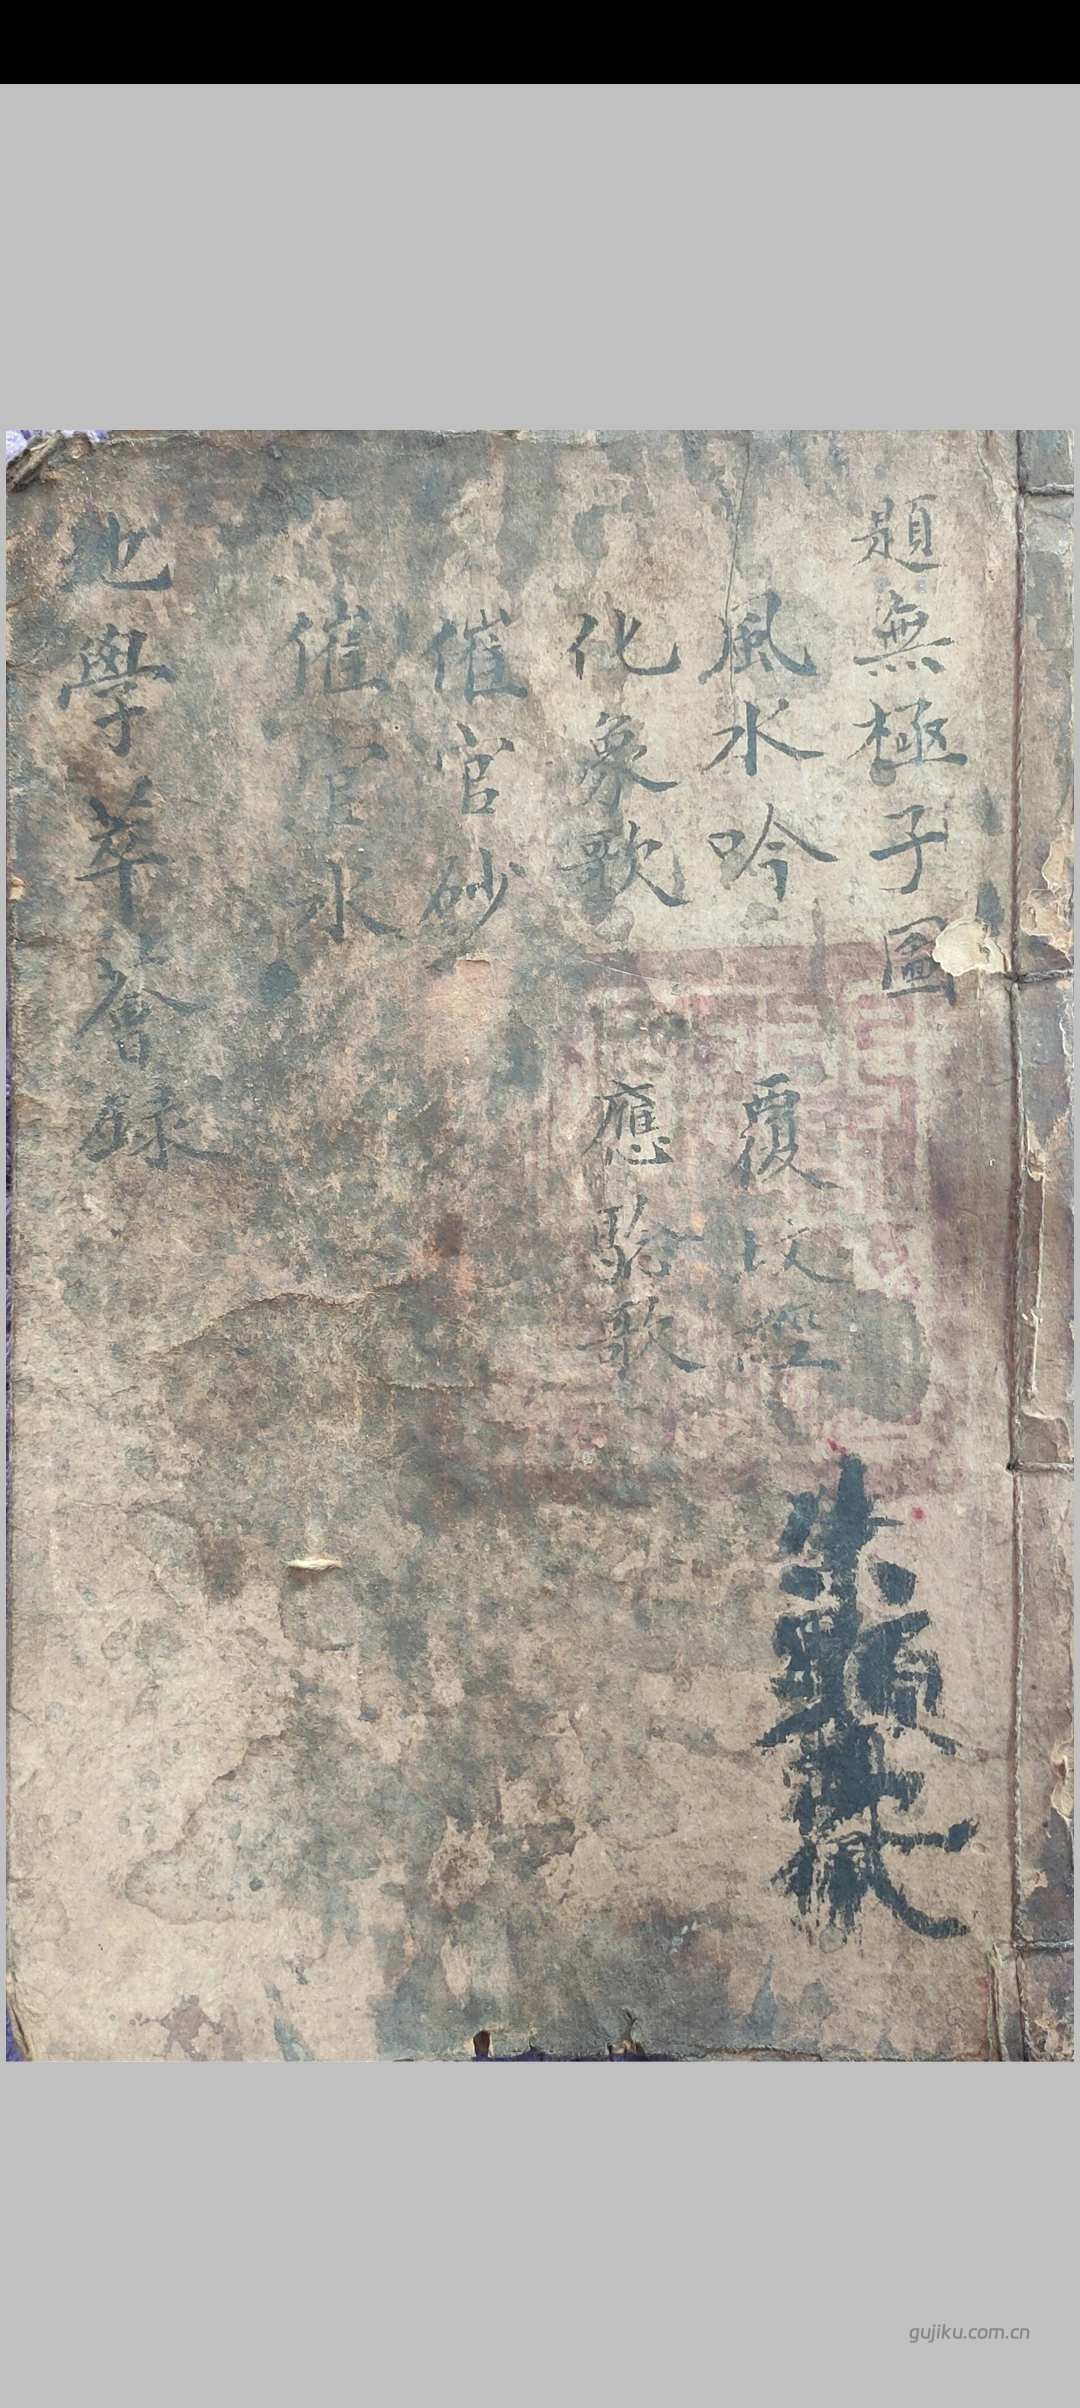 題無極子圖
風水吟 覆坟經
化象歌 應驗歌
催官砂
催官水
地學萃薈錄
gujiku.com.cn